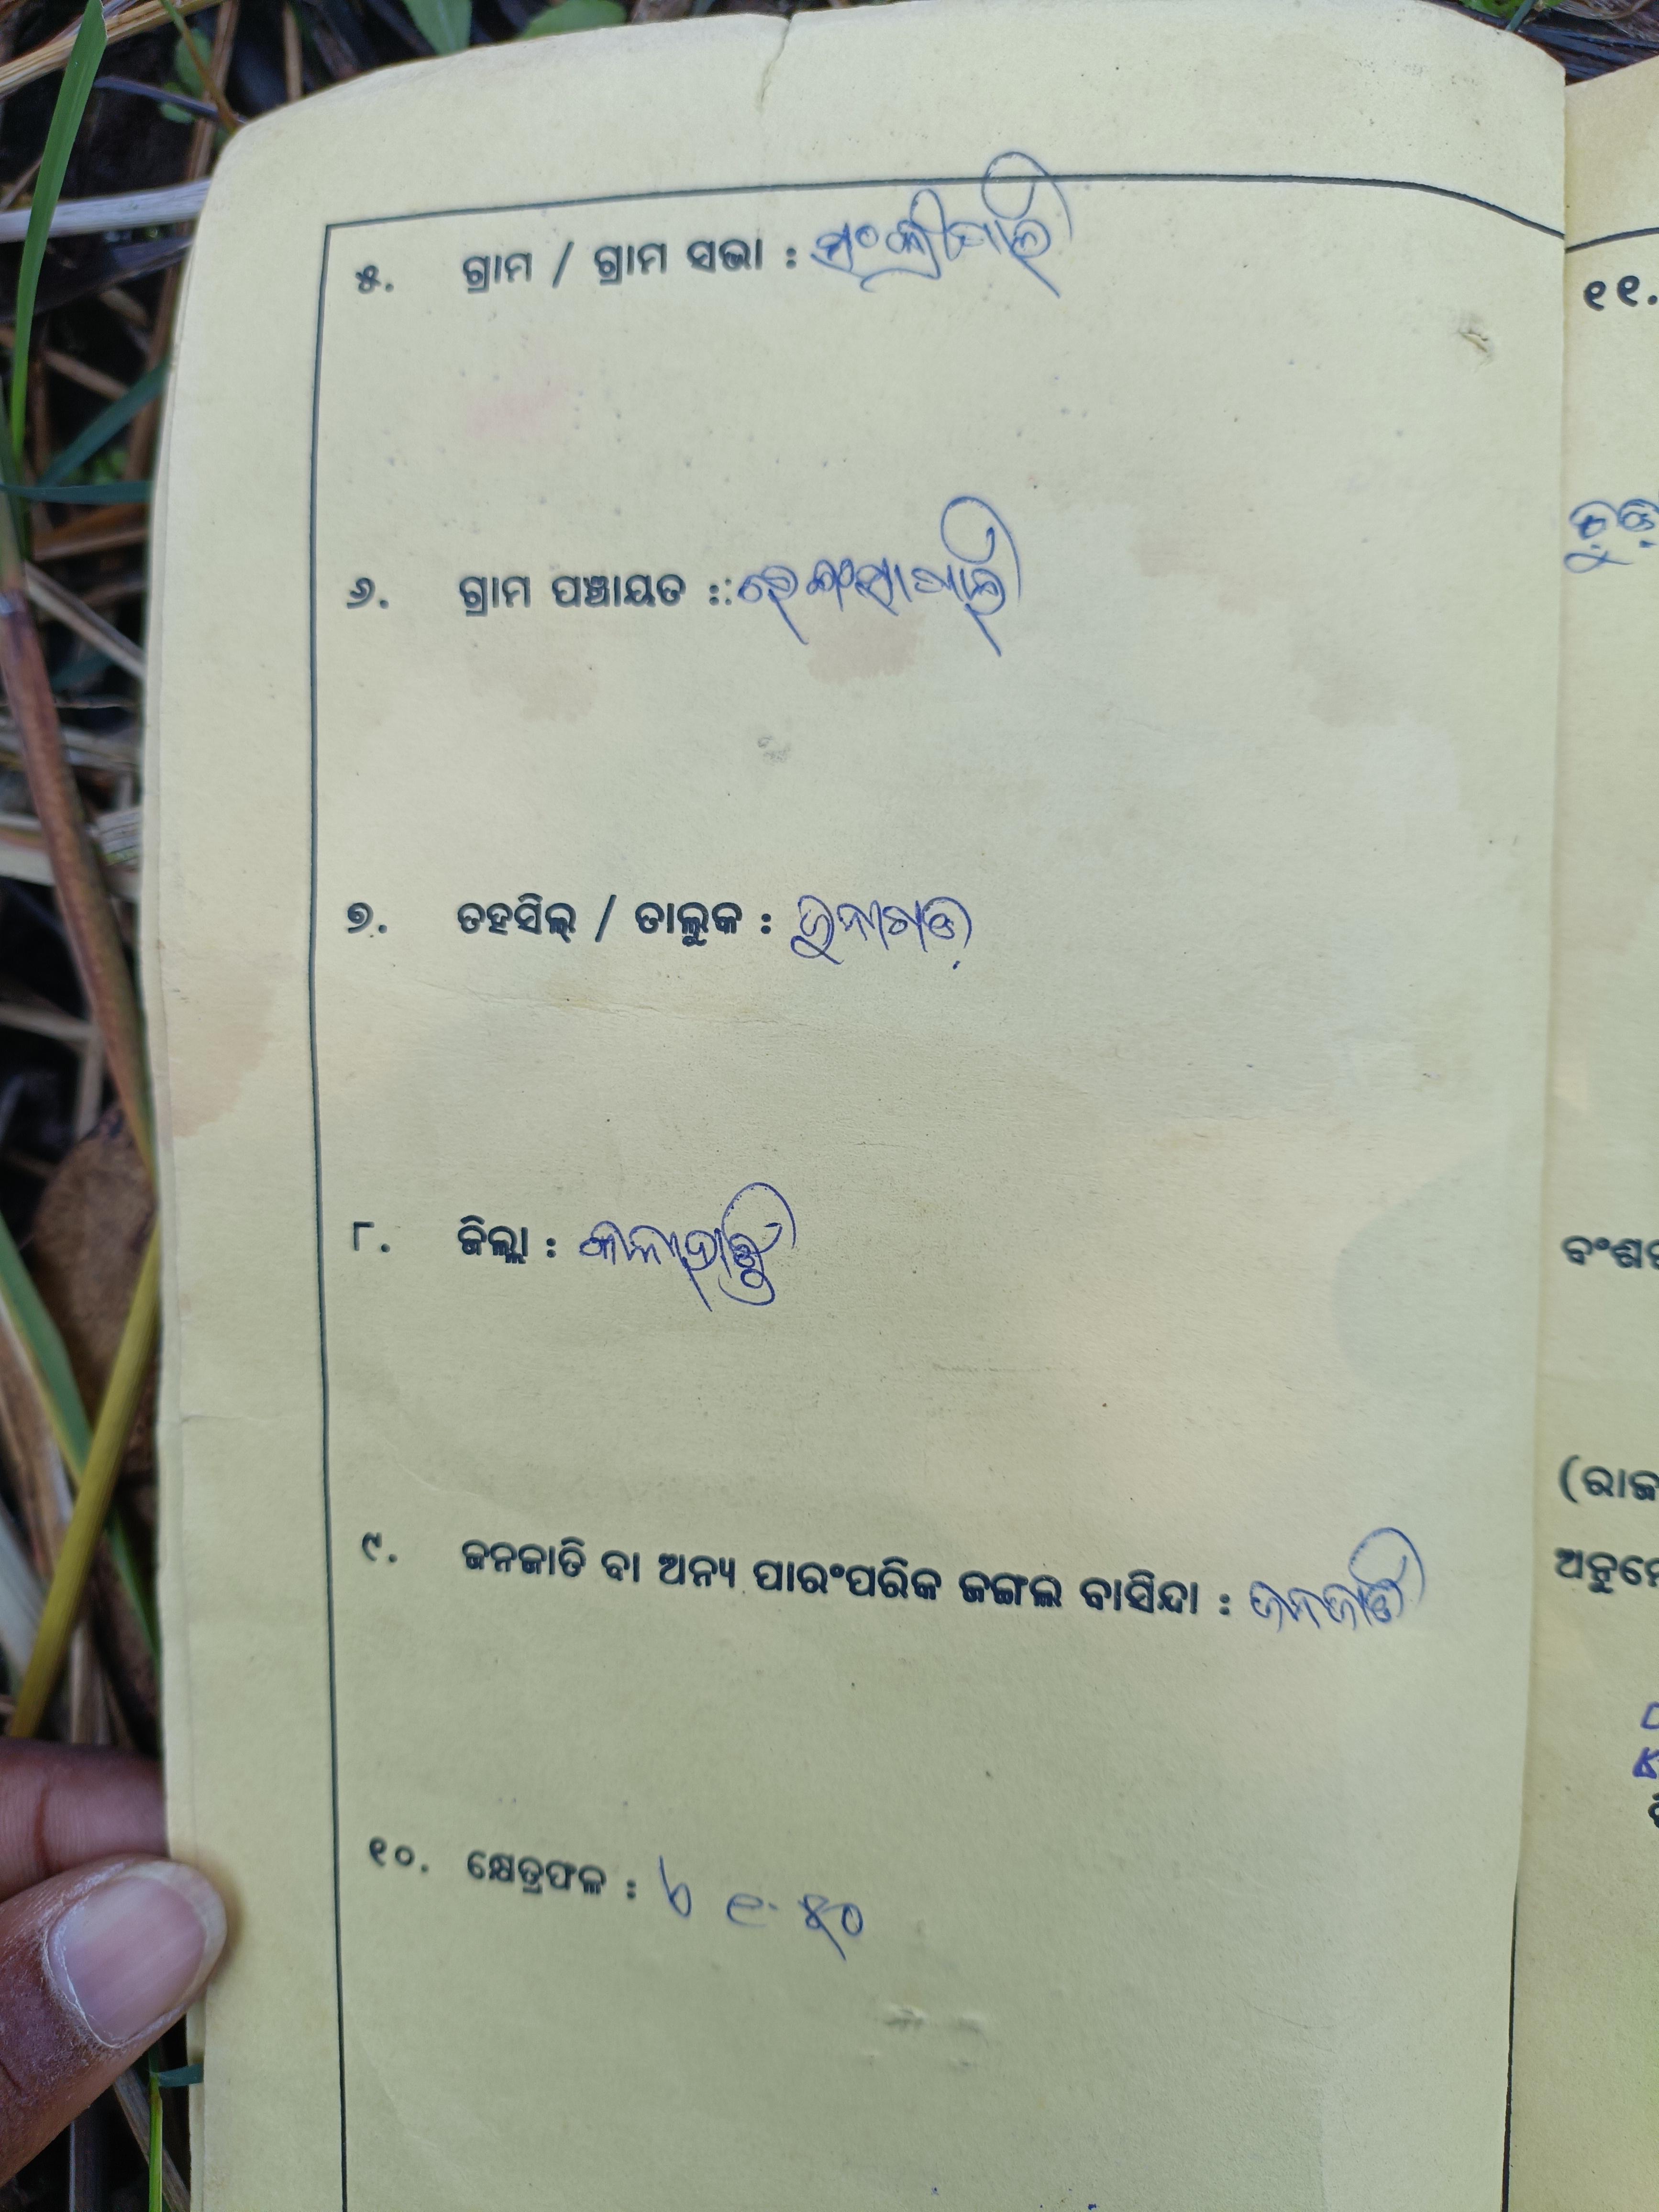 ୫. ଗ୍ରାମ / ଗ୍ରାମ ସଭା :
୬. ଗ୍ରାମ ପଞ୍ଚାୟତ ::
୭. ତହସିଲ୍ / ତାଲୁକ : ଜୁନାଗଡ଼
୮. ଜିଲ୍ଲା : କଳାହାଣ୍ଡି
୯. ଜନଜାତି ବା ଅନ୍ୟ ପାରଂପରିକ ଜଙ୍ଗଲ ବାସିନ୍ଦା : ଜନଜାତି
୧୦. କ୍ଷେତ୍ରଫଳ :
୧୧.
ବଂଶ
(ରାଜ
ଅନୁମୋ